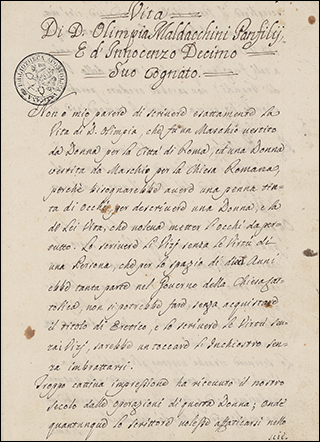 Vita
Di D. Olimpia Maldacchini Panfilij,
E d'Innocenzo Decimo
Suo Cognato.
Non è mio parere di scrivere esattamente la
Vita di D. Olimpia, che fu un Maschio vestito
da Donna per la Città di Roma, ed una Donna
vestita da Maschio per la Chiesa Romana,
perchè bisognarebbe avere una penna tin-
ta di Occhi per descrivere una Donna, e la
di Lei Vita, che voleva metter l'occhi da per
tutto. Lo scrivere li Vizj senza le Virtù di
una Persona, che per lo spazio di dieci Anni
ebbe tanta parte nel Governo della Chiesa Cat-
tolica, non si potrebbe fare, senza acquistare
il titolo di Eretico, e lo scrivere le Virtù sen-
za i Vizj, sarebbe un toccare l'Inchiostro sen-
za imbrattarsi.
Troppo cattiva impressione ha ricevuto il nostro
Secolo dalle operazioni di questa Donna; onde
quantunque lo scrittore volesse affaticarsi nello